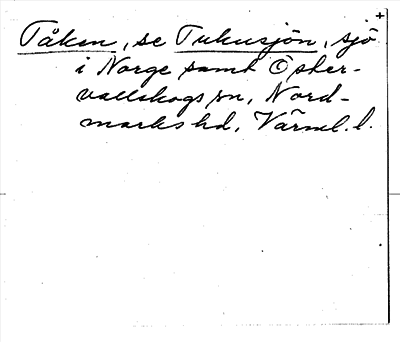 Tåken, se Tukusjön, sjö
i Norge samt Öster-
vallskogs sn, Nord-
marks hd, Värml. l.